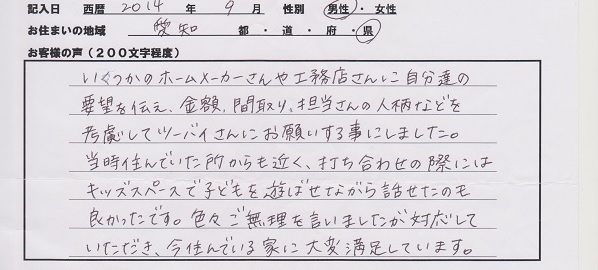 記入日 西暦 2014 年 9 月 性別 男性・女性
お住まいの地域 愛知 都・道・府・県
お客様の声（200文字程度）
いくつかのホームメーカーさんや工務店さんに自分達の
要望を伝え、金額、間取り、担当さんの人柄などを
考慮してツーバイさんにお願いする事にしました。
当時住んでいた所からも近く、打ち合わせの際には
キッズスペースで子どもを遊ばせながら話せたのも
良かったです。色々ご無理を言いましたが対応して
いただき、今住んでいる家に大変満足しています。